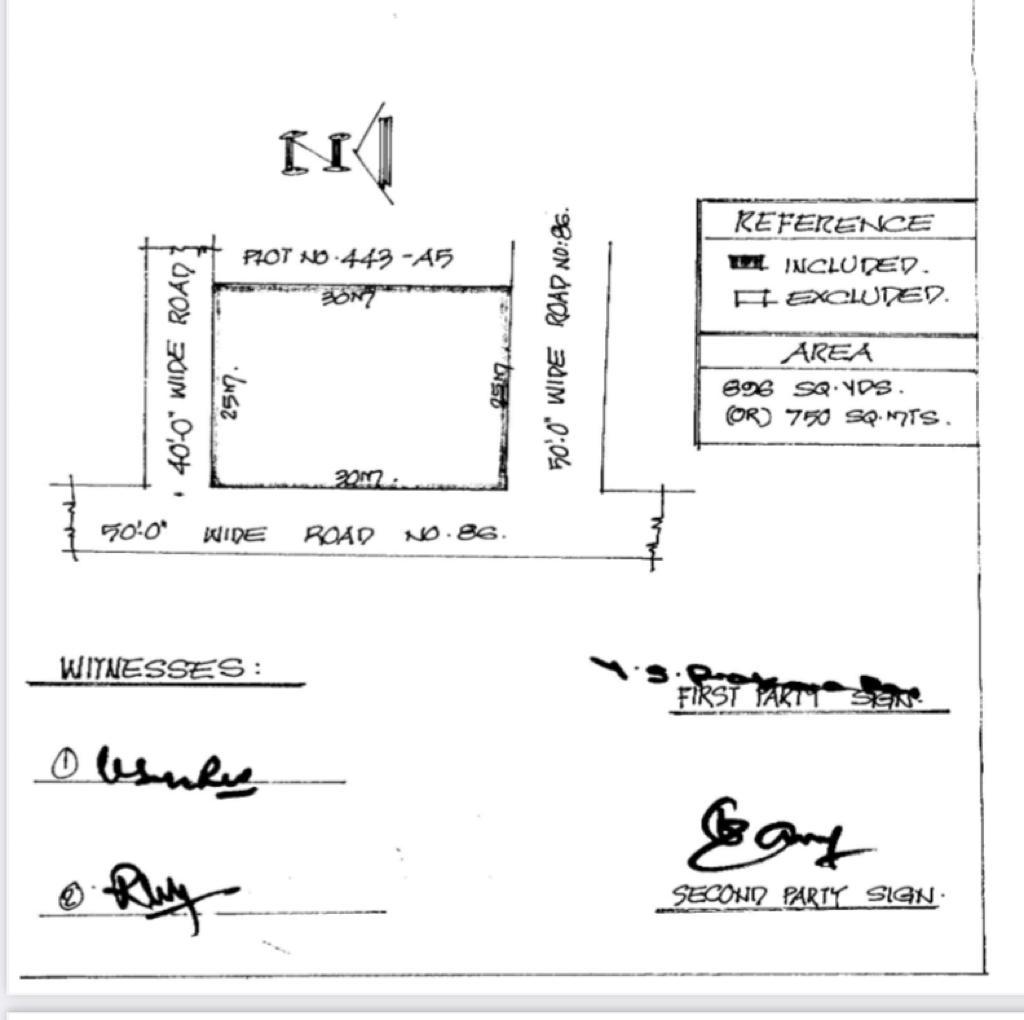 N
PLOT NO.443-A5
30M
40'-0" WIDE ROAD
25M.
25M
50'-0" WIDE ROAD NO:86.
30M.
50'-0" WIDE ROAD NO.86.
REFERENCE
INCLUDED.
EXCLUDED.
AREA
896 SQ.YDS.
(OR) 750 SQ.MTS.
WITNESSES:
FIRST PARTY SIGN.
1
2
SECOND PARTY SIGN.